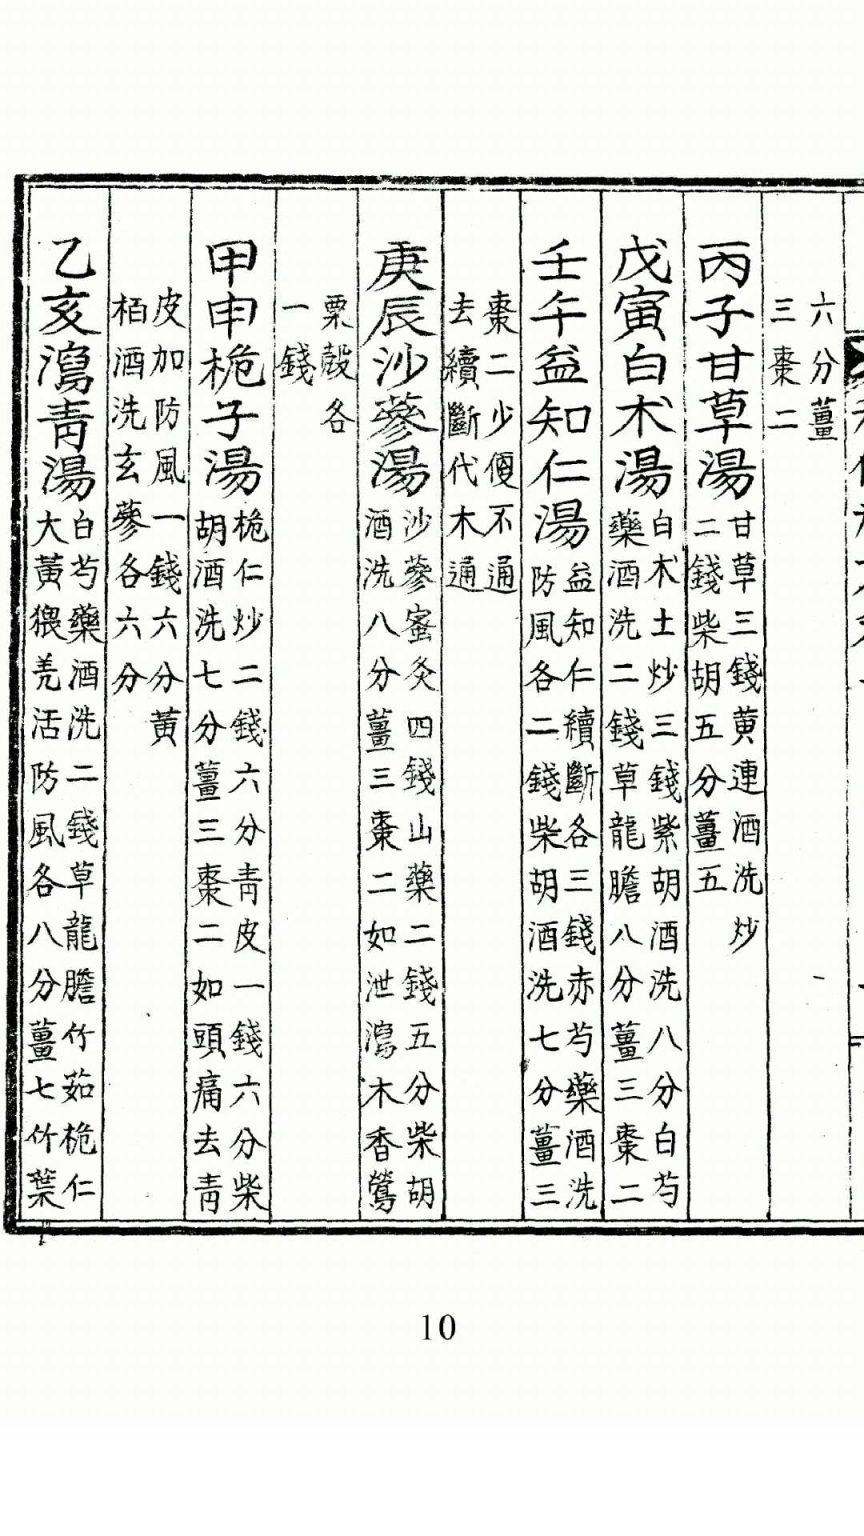 六分薑
三棗二
丙子甘草湯
甘草三錢黃連酒洗炒
二錢柴胡五分薑五
戊寅白朮湯
白朮土炒三錢柴胡酒洗八分白芍
藥酒洗二錢草龍膽八分薑三棗二
壬午益知仁湯
益知仁續斷各三錢赤芍藥酒洗
防風各二錢柴胡酒洗七分薑三
棗二少便不通
去續斷代木通
庚辰沙蔘湯
沙蔘蜜灸四錢山藥二錢五分柴胡
酒洗八分薑三棗二如泄瀉木香鶯
粟殼各
一錢
甲申梔子湯
梔仁炒二錢六分靑皮一錢六分柴
胡酒洗七分薑三棗二如頭痛去靑
皮加防風一錢六分黃
栢酒洗玄蔘各六分
乙亥瀉靑湯
白芍藥酒洗二錢草龍膽竹茹梔仁
大黃猥羌活防風各八分薑七竹葉
10